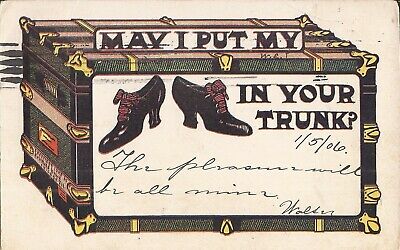 MAY I PUT MY
IN YOUR
TRUNK?
1/5/06.
The pleasure will
be all mine.
Walter